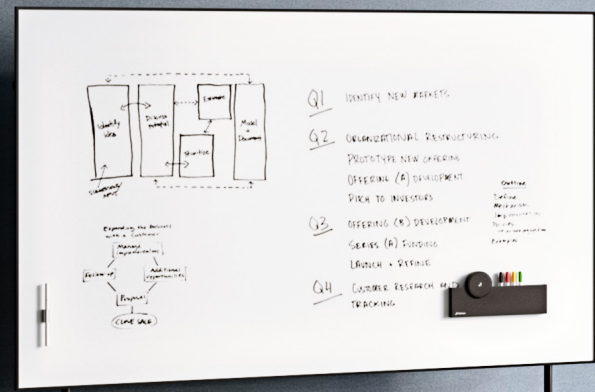 Identify
idea
Discuss
potential
Evaluate
Model
+
Document
Prioritize
Expanding the Business
with a Customer
Manage
implementation
Follow up
Additional
opportunities
Proposal
CLOSE SALE
Q1 IDENTIFY NEW MARKETS
Q2 ORGANIZATIONAL RESTRUCTURING
PROTOTYPE NEW OFFERING
OFFERING (A) DEVELOPMENT
PITCH TO INVESTORS
Q3 OFFERING (B) DEVELOPMENT
SERIES (A) FUNDING
LAUNCH + REFINE
Q4 CUSTOMER RESEARCH AND
TRACKING
Outline
Define
Mechanism
Implementation
Examples